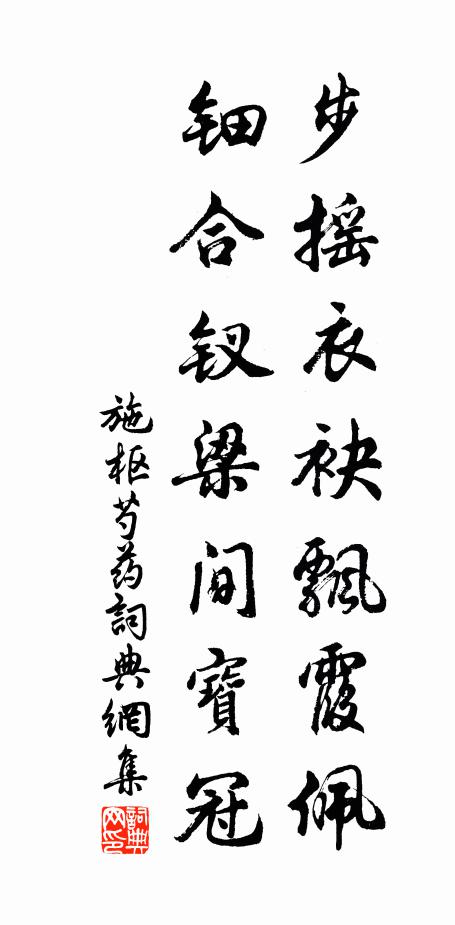 步摇衣袂飘霞佩
钿合钗梁间寶冠
施枢芍药詞典網集
詞典网印